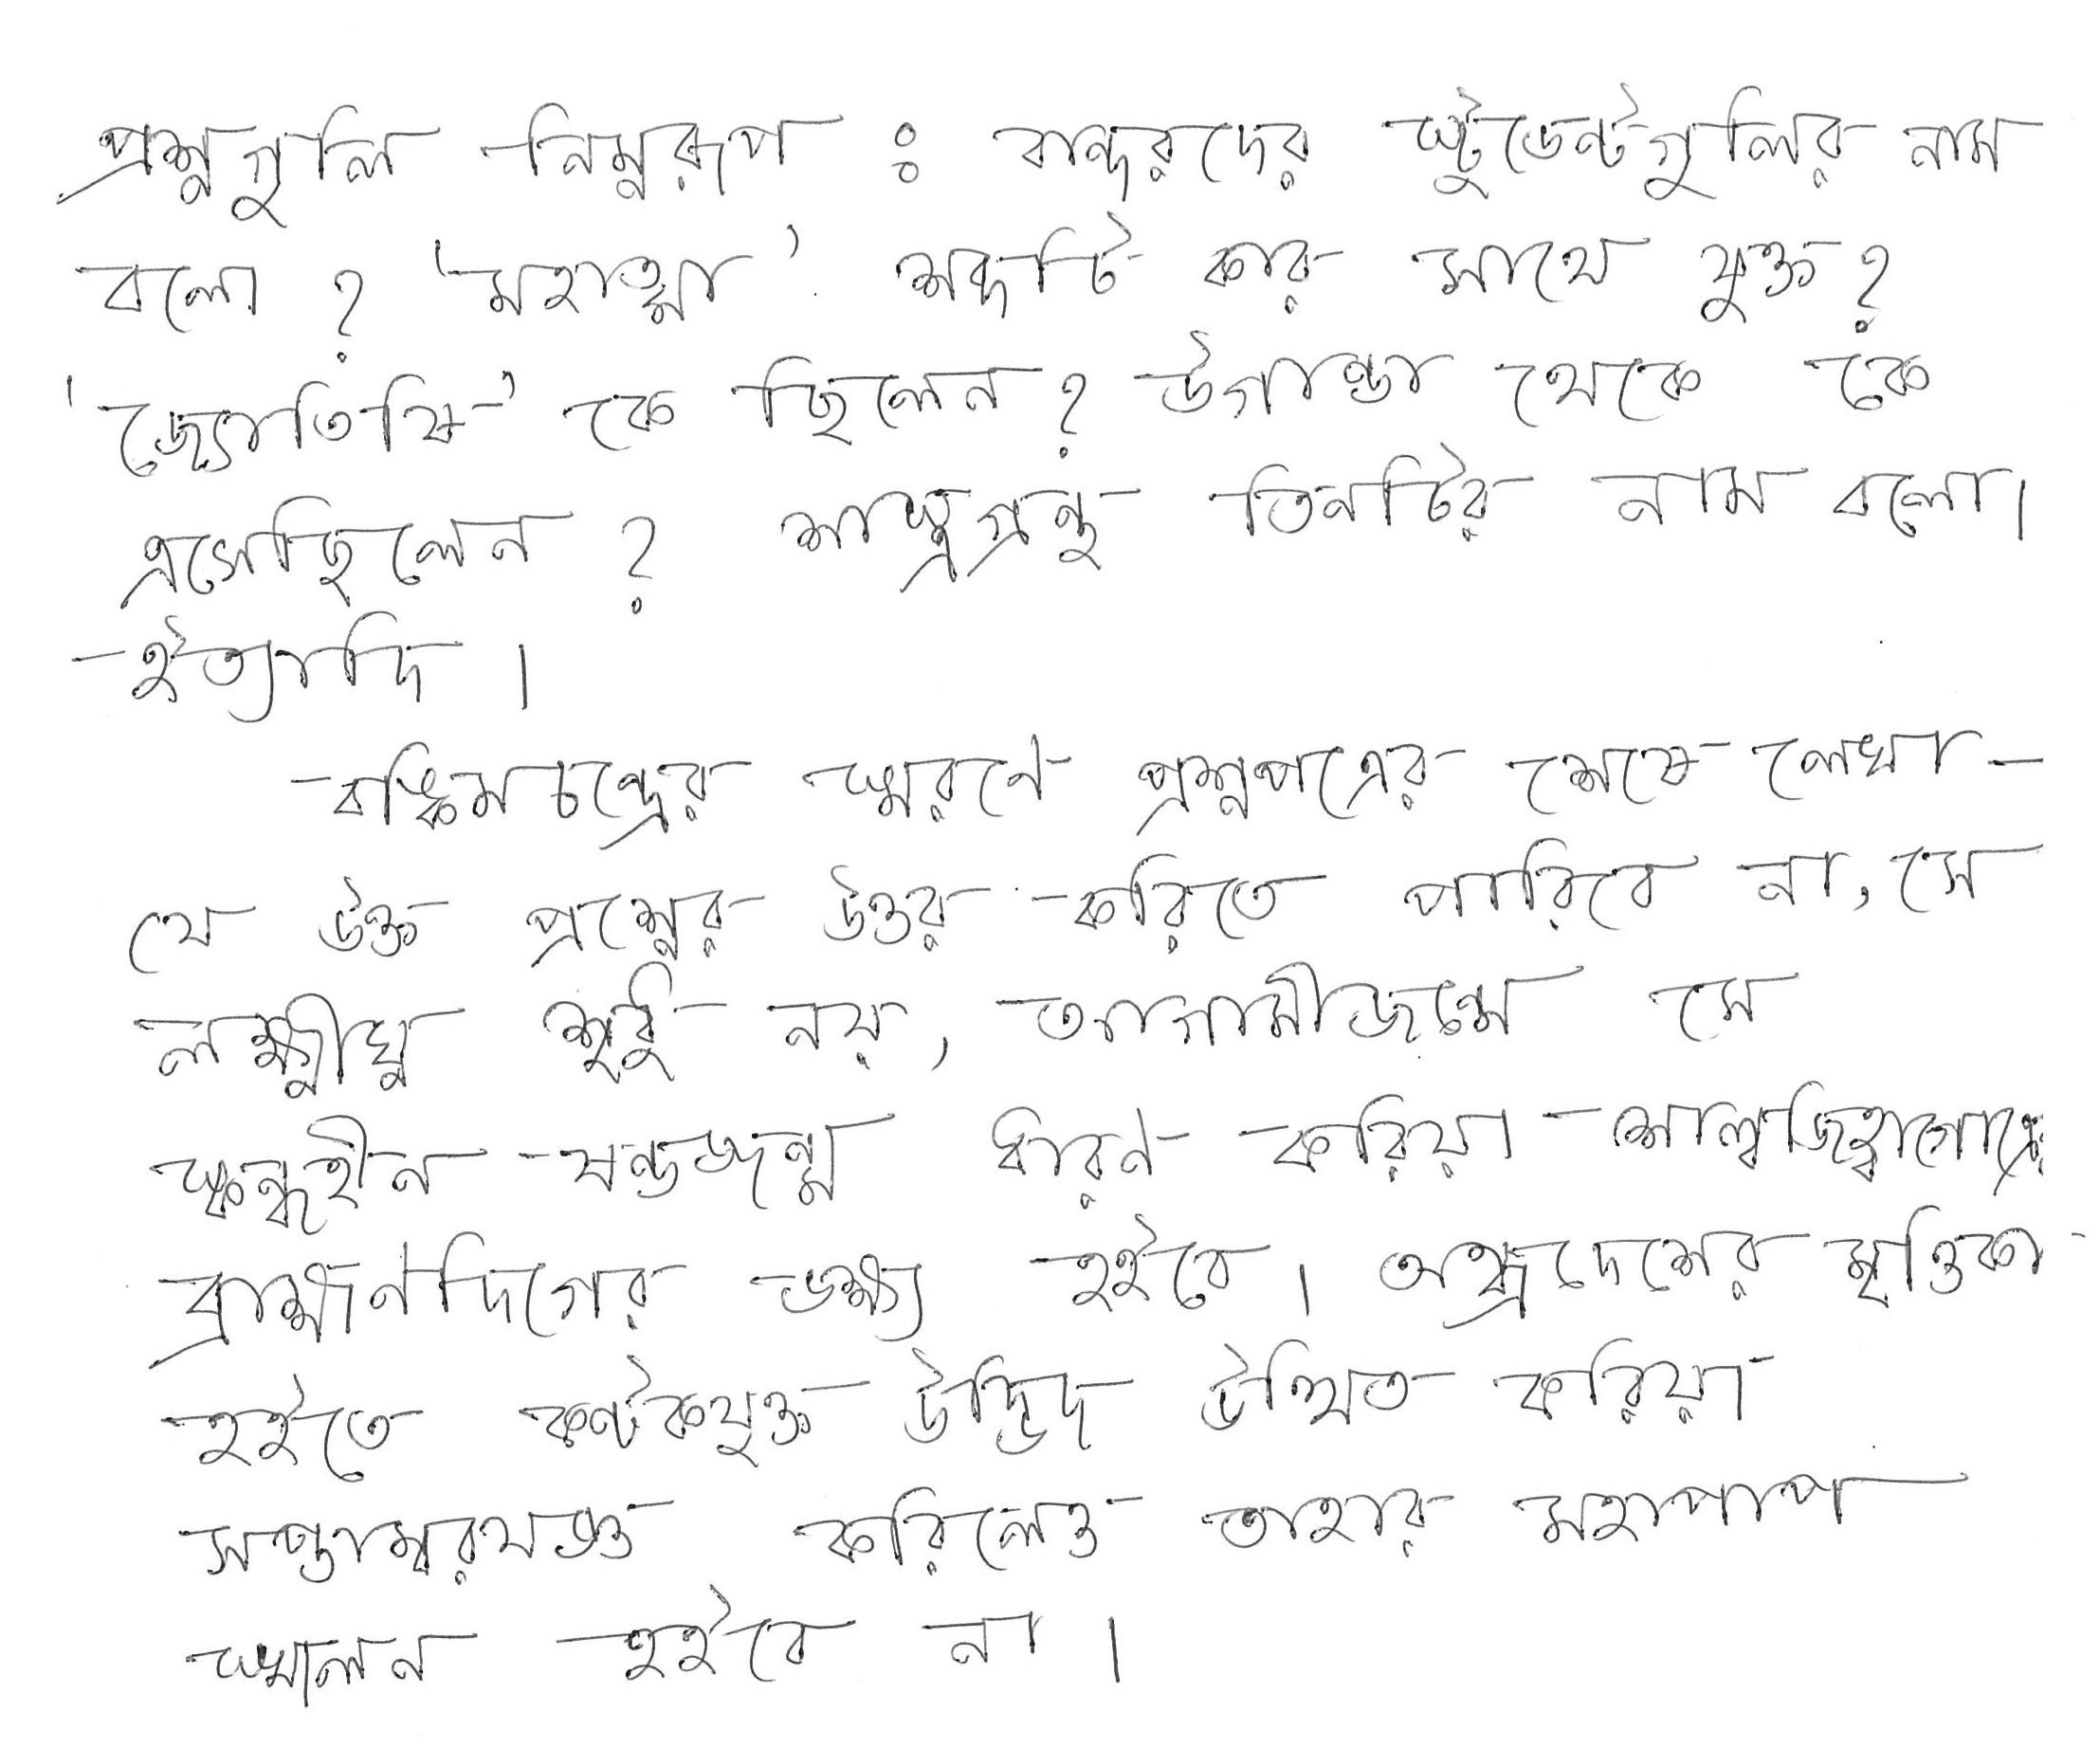 প্রশ্নগুলি নিম্নরূপ : বান্দরদের স্টুডেন্টগুলির নাম
বলো ? 'মহাত্মা' শব্দটি কার সাথে যুক্ত ?
'জ্যোতিষ্ক' কে ছিলেন ? উগান্ডা থেকে কে
এসেছিলেন ? শাস্ত্রগ্রন্থ তিনটির নাম বলো।
ইত্যাদি ।
বঙ্কিমচন্দ্রের স্মরণে প্রশ্নপত্রের শেষে লেখা -
যে উক্ত প্রশ্নের উত্তর করিতে পারিবে না, সে
লক্ষ্মীঘ্ন শুধু নয়, আগামীজন্মে সে
স্কন্ধহীন ষন্ডজন্ম ধারণ করিয়া শাল্বজিহ্বাগোত্রে
ব্রাহ্মণদিগের ভক্ষ্য হইবে । অন্ধ্রদেশের মৃত্তিকা
হইতে কণ্টকযুক্ত উদ্ভিদ উত্থিত করিয়া
করিলেও তাহার মহাপাপ
স্খালন হইবে না ।